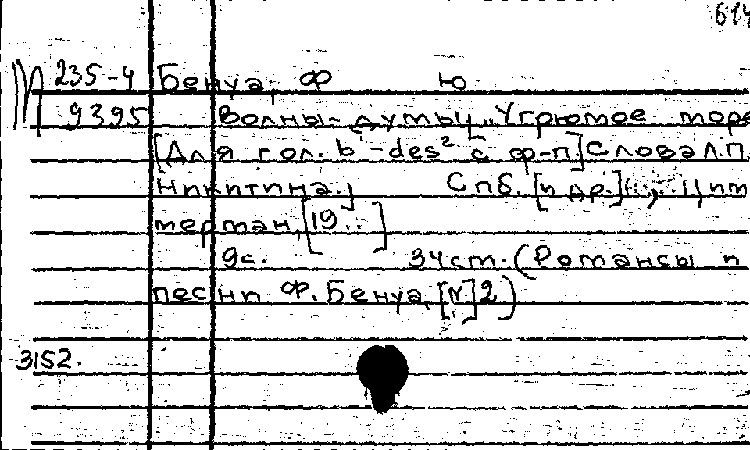 614
М 235-4 Бенуа, Ф Ю
9395 Волны-думы „Угрюмое море
[Для гол. b -des² с ф-п] Слова Л.П.
Никитина.] Спб. [и др.] Цим
мерман, [19 .. ]
9с. 34см. (Романсы и
песни Ф. Бенуа, [N]2)
3152.